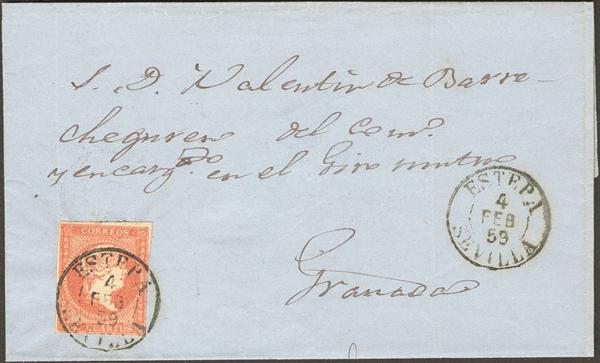 S. D. Valentin de Barre-
chegurren del Comº.
y encargdo. en el Giro mutuo
Granada
ESTEPA
4
FEB
59
SEVILLA
CORREOS
ESTEPA
4
FEB
59
SEVILLA
CUARTOS